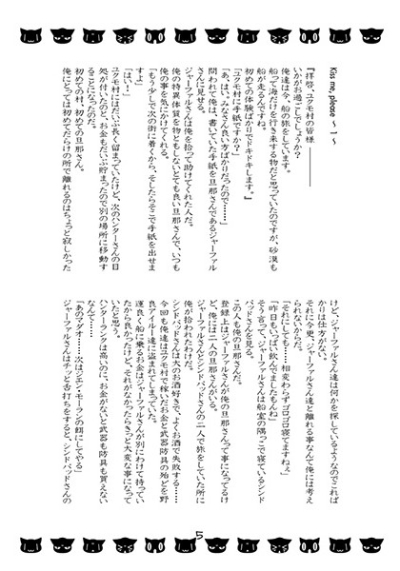 Kiss me, please ~ 1 ~
『拝啓、ユクモ村の皆様
いかがお過ごしでしょうか？
俺達は今、船の旅をしています。
船って海だけを行き来する物だと思っていたのですが、砂漠も
船が走るんですね。
初めての体験ばかりでドキドキします。』
「ユクモ村に手紙ですか？」
「あ、はい、みなさん良い方ばかりだったので……」
問われて俺は、書いていた手紙を旦那さんであるジャーファル
さんに見せる。
ジャーファルさんは俺を拾って助けてくれた人だ。
俺の特異体質を物ともしないとても良い旦那さんで、いつも
俺の事を気にかけてくれる。
「もう少しで次の街に着くから、そしたらそこで手紙を出せま
すよ」
「はい！」
ユクモ村にはだいぶ長く留まっていたけど、次のハンターさんの目
処が付いたのと、お金もだいぶ貯まったので別の場所に移動す
ることになったのだ。
初めての村、初めての旦那さん。
俺にとっては初めてだらけの所で離れるのはちょっと寂しかった
けど、ジャーファルさん達は何かを探しているようなのでこれば
かりは仕方がない。
それに今更、ジャーファルさん達と離れる事なんて俺には考え
られないからだ。
「それにしても……相変わらずゴロゴロ寝てますねぇ」
「昨日もいっぱい飲んでましたもんね」
そう言って、ジャーファルさんは船室の隅っこで寝ているシンド
バッドさんを見る。
この人も俺の旦那さんだ。
登録上はジャーファルさんが俺の旦那さんって事になってるけ
ど、俺には二人の旦那さんがいる。
ジャーファルさんとシンドバッドさんの二人で旅をしていた所に
俺が拾われたわけだ。
シンドバッドさんは大のお酒好きで、よくお酒で失敗する……
今回も俺達はユクモ村で稼いだお金と武器防具の殆どを野
良アイルー達に盗まれてしまっていた。
運良く船に乗るお金はジャーファルさんが別にわけて持ってい
たから良かったけど、それがなかったらきっと大変な事になって
いたと思う。
ハンターランクは高いのに、お金がないと武器も防具も買えない
なんて……
「あのマダオ……次はジエン・モーランの餌にしてやる」
ジャーファルさんはチッと舌打ちをすると、シンドバッドさんの
5